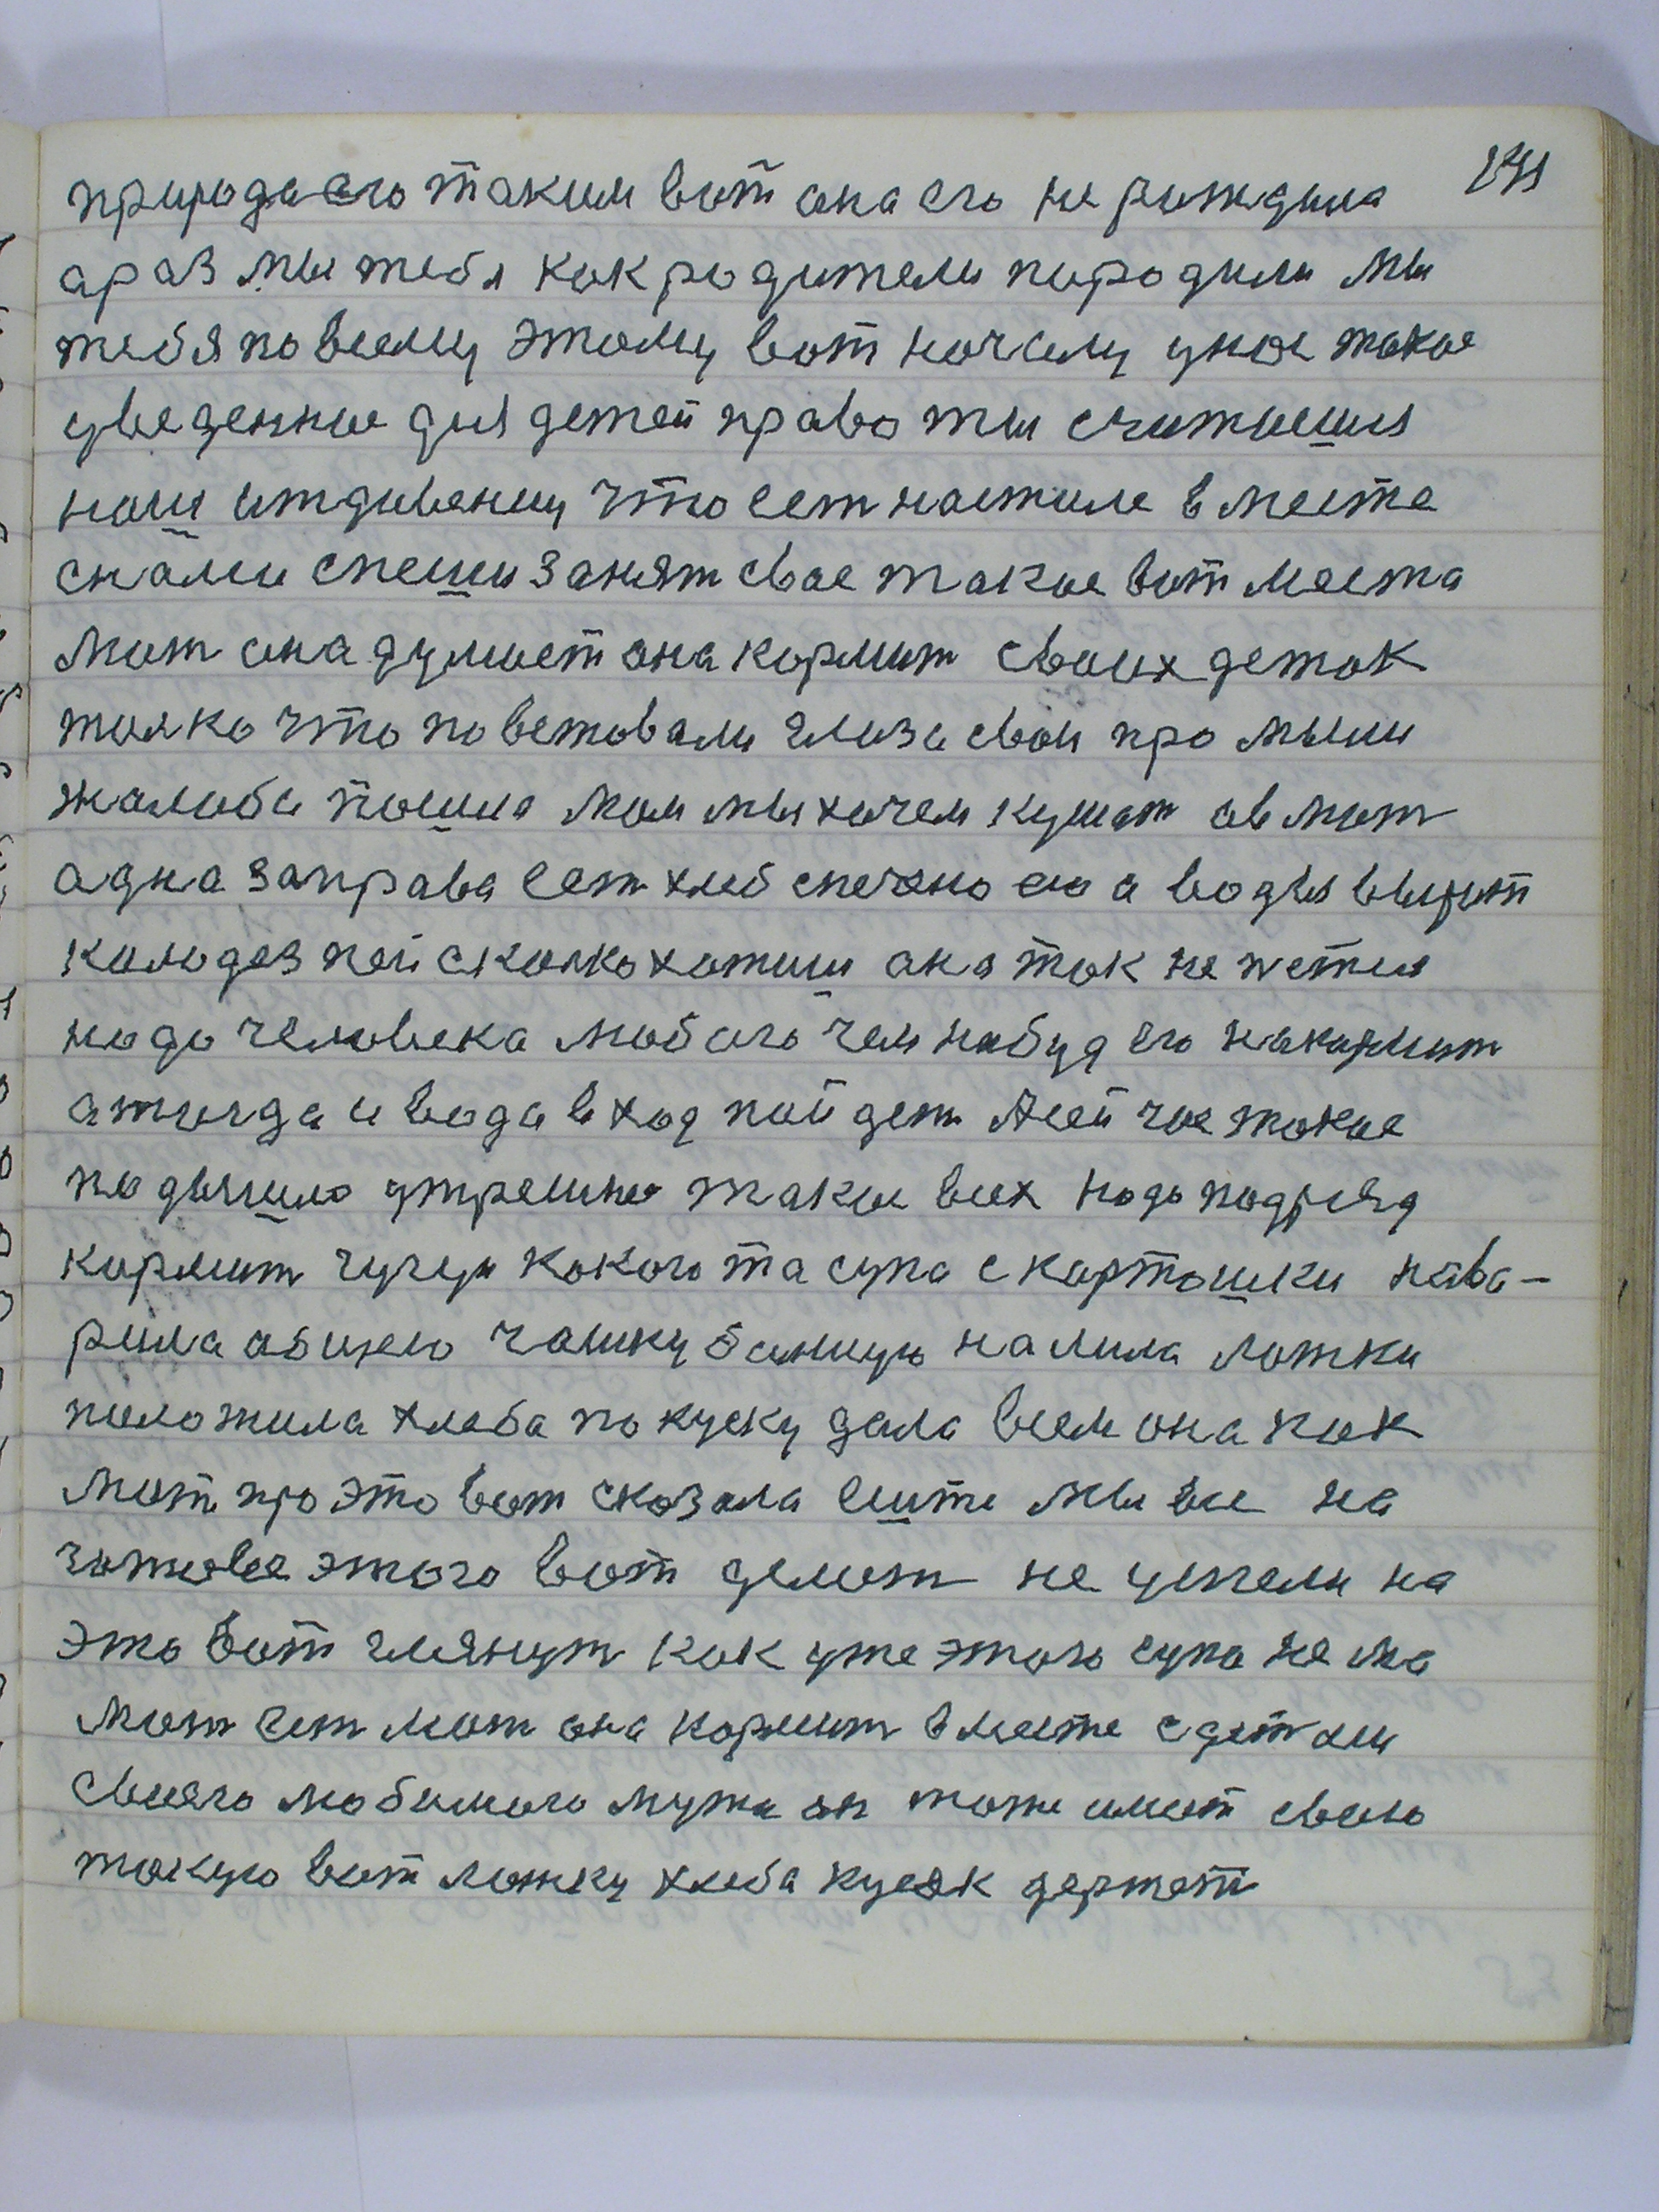 191
природа его таким вот она его не рождила
араз мы тебя как родители породили мы
тебя по всему этому вот начелу унас такое
уведенное для детей право ты считаешя
наш иждивениц что сет настиле вместе
снами спеши занят свое такое вот места
мат она думает она кормит своих деток
толко что повставали глаза свои промыли
жалоба пошла мам мы хочем кушат ов мат
адна заправа ест хлеб спечоно ею а воды вырыт
колодез пей сколко хотиш она так не петея
надо человека любого чем небуд его накормит
атогда и вода вход пойдет Асейчас такое
подышло утрешне такое всех надо подряд
кормит чугун какого та супа скартошки нава-
рила абшею чашку балшую налила ложки
положила хлеба по куску дала всем она как
мат про это вот сказала ешти мы все на
готовее этого вот делат не успели на
это вот глянут как уже этого супа не ма
мат ест мат она кормит вместе сдетями
своего любимого мужа он тоже имеет свою
такую вот ложку хлеба кусок держет